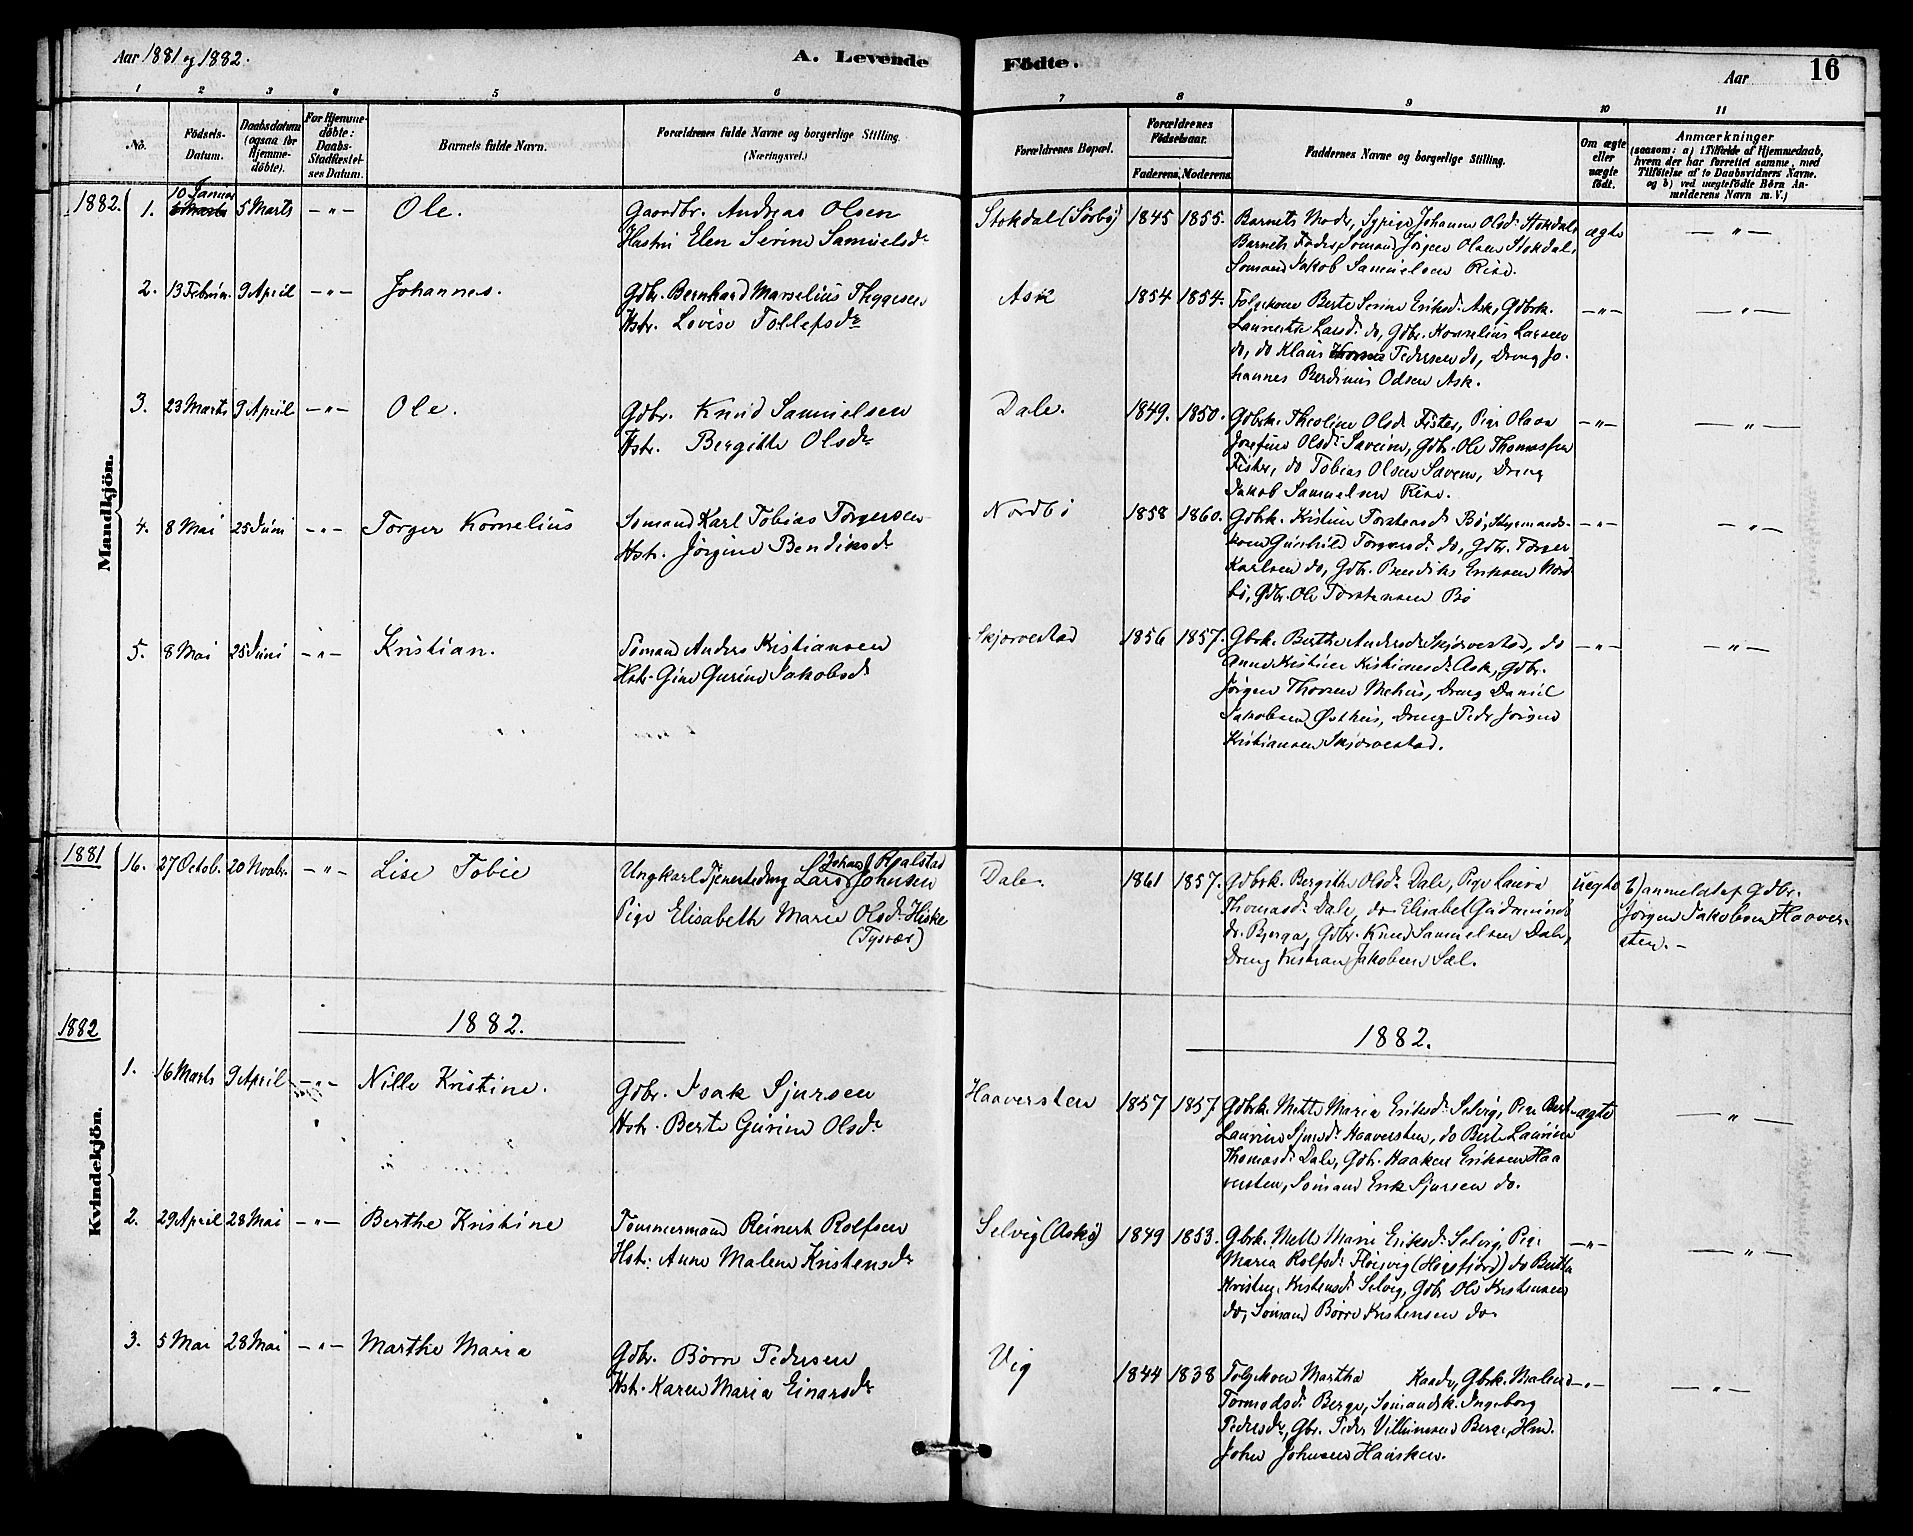 Aar 1881 og 1882.
A. Levende Födte.
Aar
16
1 2 3 4 5 6 7 8 9 10 11
No.
Födsels-Datum.
Daabsdatum (ogsaa for Hjemmedöbte).
For Hjemmedöbte: Daabs-Stadfæstelses Datum.
Barnets fulde Navn.
Forældrenes fulde Navne og borgerlige Stilling. (Næringsvei.)
Forældrenes Bopæl.
Forældrenes Födselsaar.
Faderens. Moderens.
Faddernes Navne og borgerlige Stilling.
Om ægte eller uægte födt.
Anmærkninger
(saasom: a) i Tilfælde af Hjemmedaab,
hvem der har forrettet samme, med
Tilföielse af to Daabsvidners Navne.
og b) ved uægtefödte Börn An-
melderens Navn m. V.)
Mandkjön.
1882. 1. 10 Januar 5 Marts 5 Marts —"— Ole.
Gaardbr. Andreas Olsen
Hustru Elen Serine Samuelsdr
Stokdal (Sörbö) 1845 1855.
Barnets Moder, Sypige Johanne Olsdr Stokdal,
Barnets Fader, Sömand Jörgen Olsen Stokdal,
Sömand Jakob Samuelsen Risø.
ægte —"—
2. 13 Februar 9 April —"— Johannes.
Gdbr. Bernhard Marselius Thygesen
Hstr. Lovise Tollefsdr
Ask 1854 1854.
Folgekone Berte Serine Eriksdr Ask, Gdbrk.
Laurentze Larsdr do, Gdbr. Kornelius Larsen
do, do Klaus Pedersen do, Dreng Jo-
hannes Berdinus Odsen Ask.
—"— —"—
3. 23 Marts 9 April —"— Ole.
Gdbr. Knud Samuelsen
Hstr. Bergitte Olsdr
Dale. 1849. 1850.
Gdbrk. Theoline Olsdr Fister, Pige Olava
Josefine Olsdr, Gdbr. Ole Thomassen
Fister, do Tobias Olsen, Dreng
Jakob Samuelsen Risø.
—"— —"—
4. 8 Mai 25 Juni —"— Torger Kornelius
Sömand Karl Tobias Torgersen
Hstr. Jörgine Bendiksdr
Nordbö 1858 1860.
Gdbrk. Kristine Torstensdr Bö, Styrmands-
kone Gunhild Torgersdr do, Gdbr. Torger
Karlsen do, Gdbr. Bendiks Eriksen Nord-
bö, Gdbr. Ole Torstensen Bö
—"— —"—
5. 8 Mai 25 Juni —"— Kristian.
Sömand Anders Kristiansen
Hstr. Gine Gurine Jakobsdr
Skjörvestad 1856 1857.
Gbrk. Berthe Andersdr Skjörvestad, do
Anne Kristine Kristiansdr Ask, Gdbr.
Jörgen Thorsen Mehus, Dreng Daniel
Jakobsen Østhus, Dreng Peder Jörgen
Kristiansen Skjörvestad.
—"— —"—
Kvindekjön.
1881 16. 27 Octob. 20 Novbr. —"— Lise Tobie
Ungkarl Tjenestedreng Lars Johan Johnsen Rjalstad
Pige Elisabeth Marie Olsdr Hiske
(Tysvær)
Dale. 1861 1857.
Gdbrk. Bergithe Olsdr Dale, Pige Laura
Thomasdr Dale, do Elisabet Gudmunds-
dr. Bjerga, Gdbr. Knud Samuelsen Dale,
Dreng Kristian Jakobsen Sæl.
uægte
b) anmeldt af Gdbr.
Jörgen Jakobsen Haaver-
sten.—
1882 1882. 1882.
1. 16 Marts 9 April —"— Nille Kristine.
Gdbr. Isak Sjursen
Hstr. Berte Gurine Olsdr
Haaversten 1857 1857
Gdbrk. Mette Maria Eriksdr Selvig, Pige Bert
Laurine Sjursdr Haaversten, do Berte Laurine
Thomasdr Dale, Gdbr. Haaken Eriksen Haa-
versten, Sömand Erik Sjursen do.
ægte —"—
2. 29 April 28 Mai —"— Berthe Kristine
Tömmermand Reinert Rolfsen
Hstr. Anne Malene Kristensdr
Selvig (Askö) 1849 1853.
Gbrk. Mette Marie Eriksdr Selvig, Pige
Maria Rolfsdr (Högsfjord) do Berthe
Kristine Kristensdr Selvig, Gdbr Ole Kristensen
do, Sömand Börre Kristensen do
—"— —"—
3. 5 Mai 28 Mai —"— Marthe Maria
Gdbr. Börn Pedersen
Hstr. Karen Maria Einarsdr
Vig 1844 1838
Folgekone Martha Kaade, Gbrk. Malene
Tormodsdr Berge, Sömandsk. Ingeborg
Pedersdr, Gbr. Peder Villumsen Berge, Hm.
John Johnsen Hausken.
—"— —"—